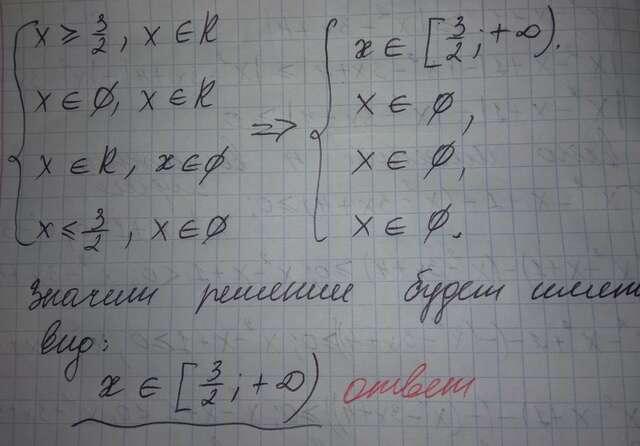 x ≥ 3/2, x ∈ R ⇒ x ∈ [3/2; +∞).
x ∈ ∅, x ∈ R x ∈ ∅,
x ∈ R, x ∈ ∅ x ∈ ∅,
x ≤ 3/2, x ∈ ∅ x ∈ ∅.
Значит решение будет имет
вид:
x ∈ [3/2; +∞) ответ